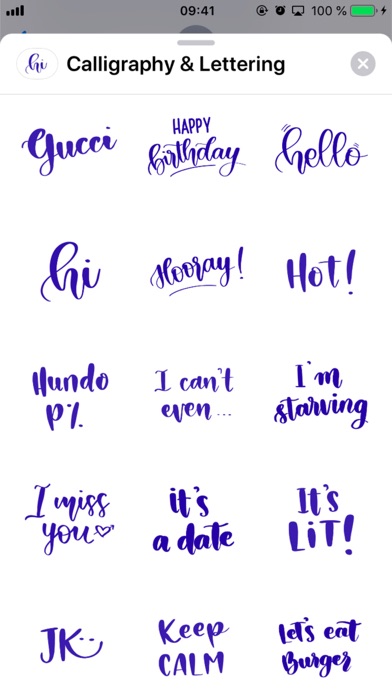 09:41
100 %
hi
Calligraphy & Lettering
Gucci
HAPPY
birthday
hello
hi
Hooray!
Hot!
Hundo
P%
I can't
even...
I'm
starving
I miss
you
it's
a date
It's
LiT!
JK
Keep
CALM
let's eat
Burger